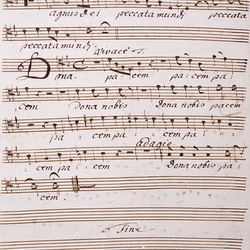 agnus dei peccata mundi peccata
peccata mundi.
Vivace
Dona. pa. cem pa. cem pa.
cem Dona nobis Dona nobis pacem
pa. cem pa. cem pa.
cem pa. cem Dona nobis pa.
Adagio
cem.
Fine